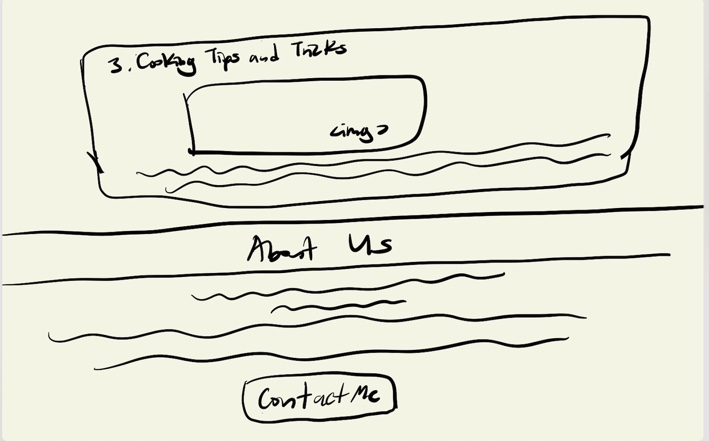 3. Cooking Tips and Tricks
<img>
About Us
Contact Me